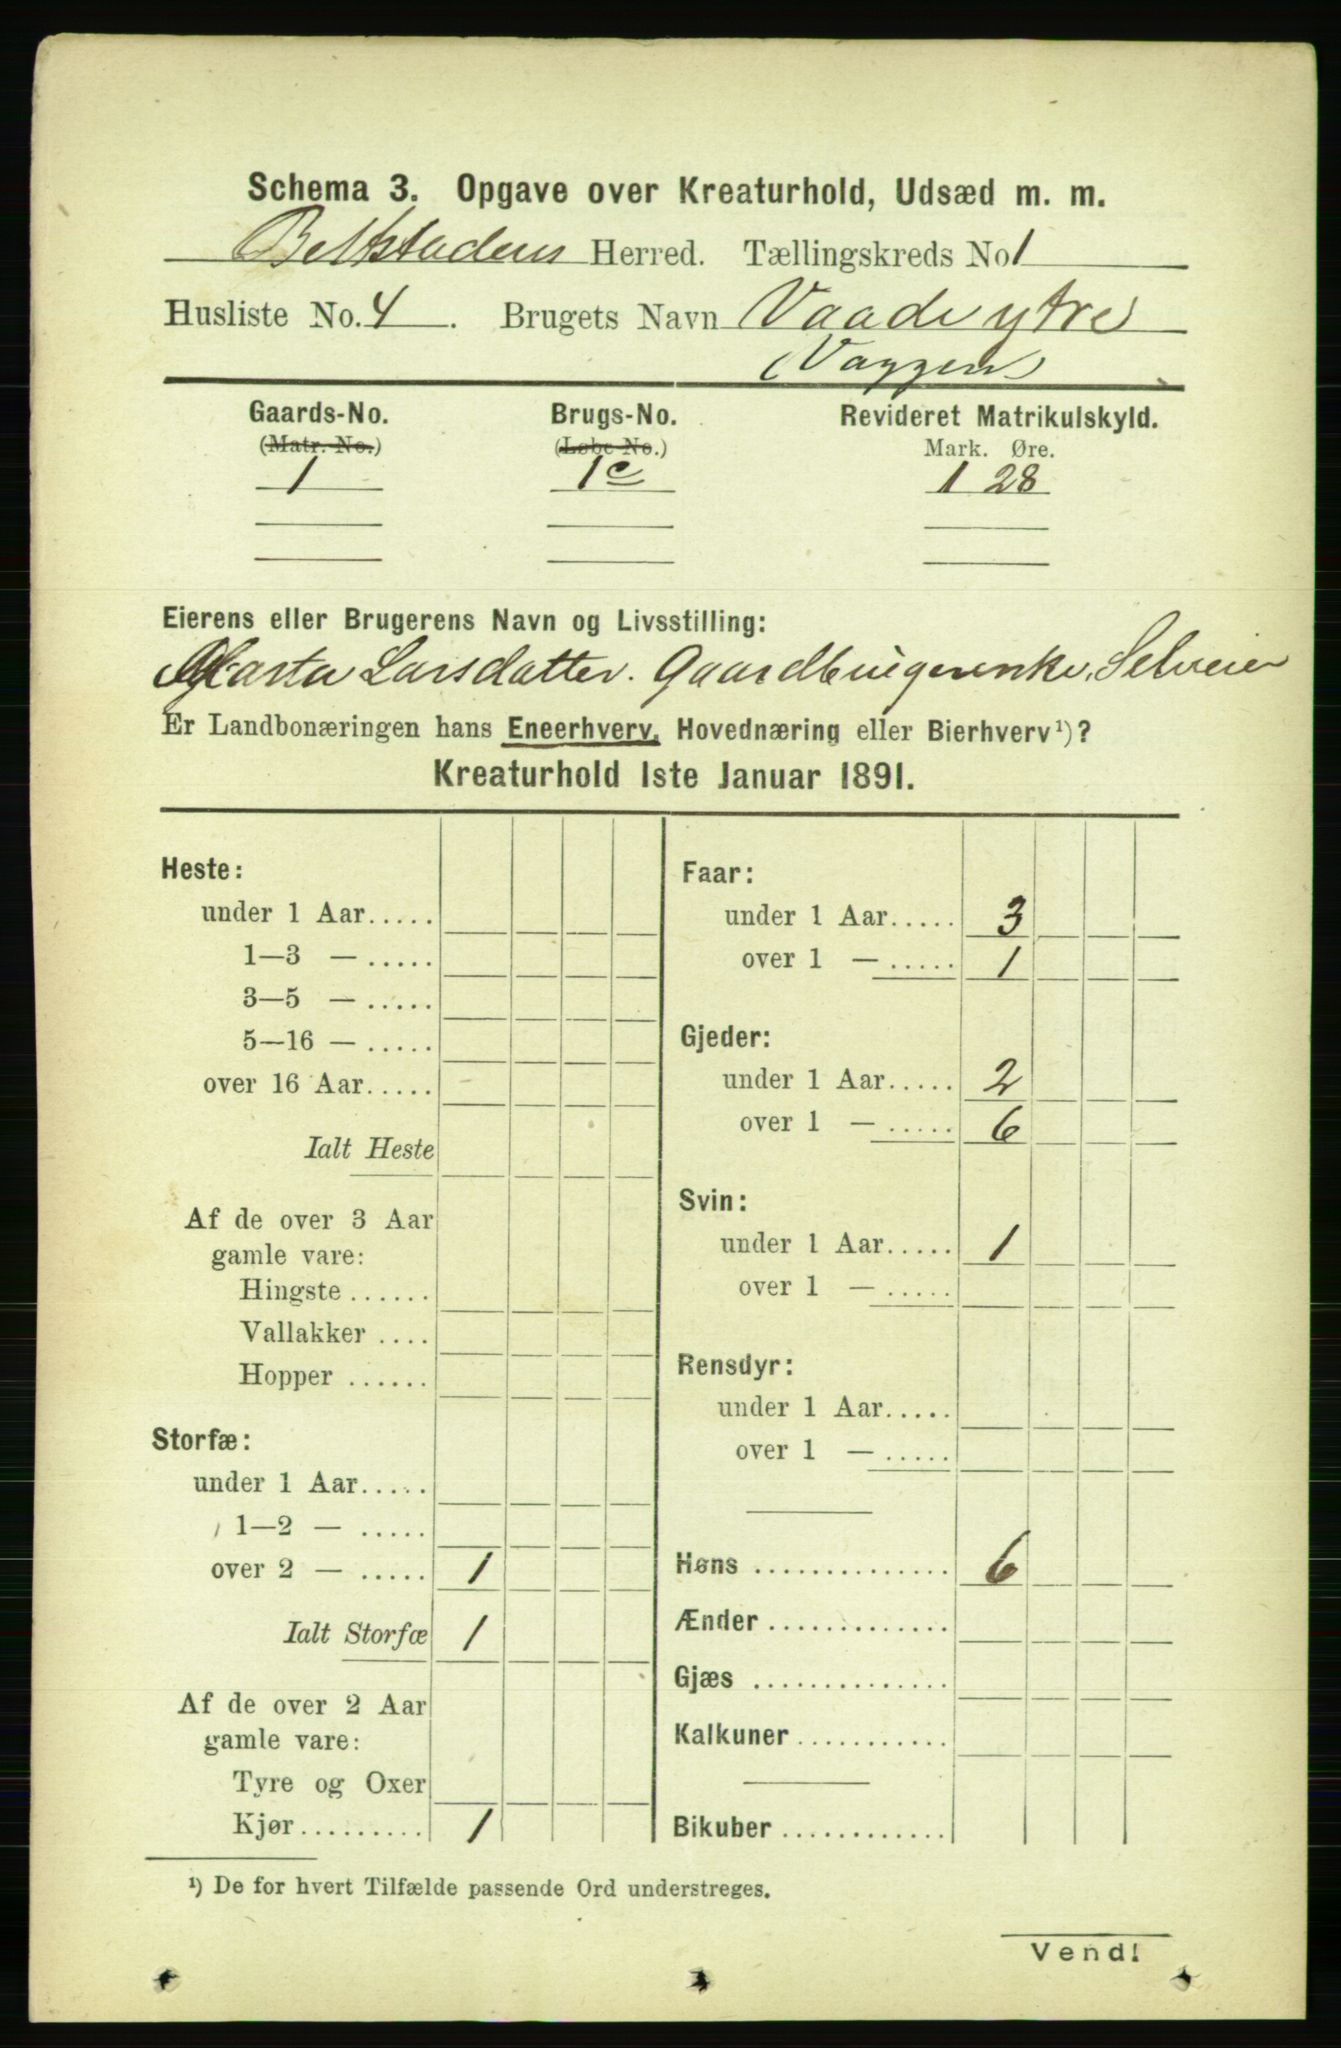 Schema 3. Opgave over Kreaturhold, Udsæd m. m.
Beitstadens Herred. Tællingskreds No 1
Husliste No. 4. Brugets Navn Vaade ytre
(Vaggen)
Gaards-No. Brugs-No. Revideret Matrikulskyld.
(Matr. No.) (Løbe No.) Mark. Øre.
1 1c 1 28
Eierens eller Brugerens Navn og Livsstilling:
Marta Larsdatter. Gaardbrugerenke, Selveier
Er Landbonæringen hans Eneerhverv, Hovednæring eller Bierhverv¹)?
Kreaturhold 1ste Januar 1891.
Heste:
under 1 Aar.....
1—3 — .....
3—5 — .....
5—16 — .....
over 16 Aar.....
Ialt Heste
Af de over 3 Aar
gamle vare:
Hingste ......
Vallakker ....
Hopper ......
Storfæ:
under 1 Aar.....
1—2 — .....
over 2 — ..... 1
Ialt Storfæ 1
Af de over 2 Aar
gamle vare:
Tyre og Oxer
Kjør......... 1
Faar:
under 1 Aar..... 3
over 1 — ..... 1
Gjeder:
under 1 Aar..... 2
over 1 — ..... 6
Svin:
under 1 Aar..... 1
over 1 — .....
Rensdyr:
under 1 Aar.....
over 1 — .....
Høns .............. 6
Ænder .............
Gjæs ..............
Kalkuner ...........
Bikuber ............
¹) De for hvert Tilfælde passende Ord understreges.
Vend!